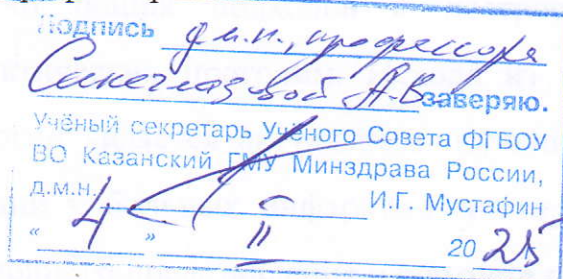 Подпись д.м.н., профессора
Синеглазовой А.В. заверяю.
Учёный секретарь Учёного Совета ФГБОУ
ВО Казанский ГМУ Минздрава России,
д.м.н. И.Г. Мустафин
« 4 » II 2025